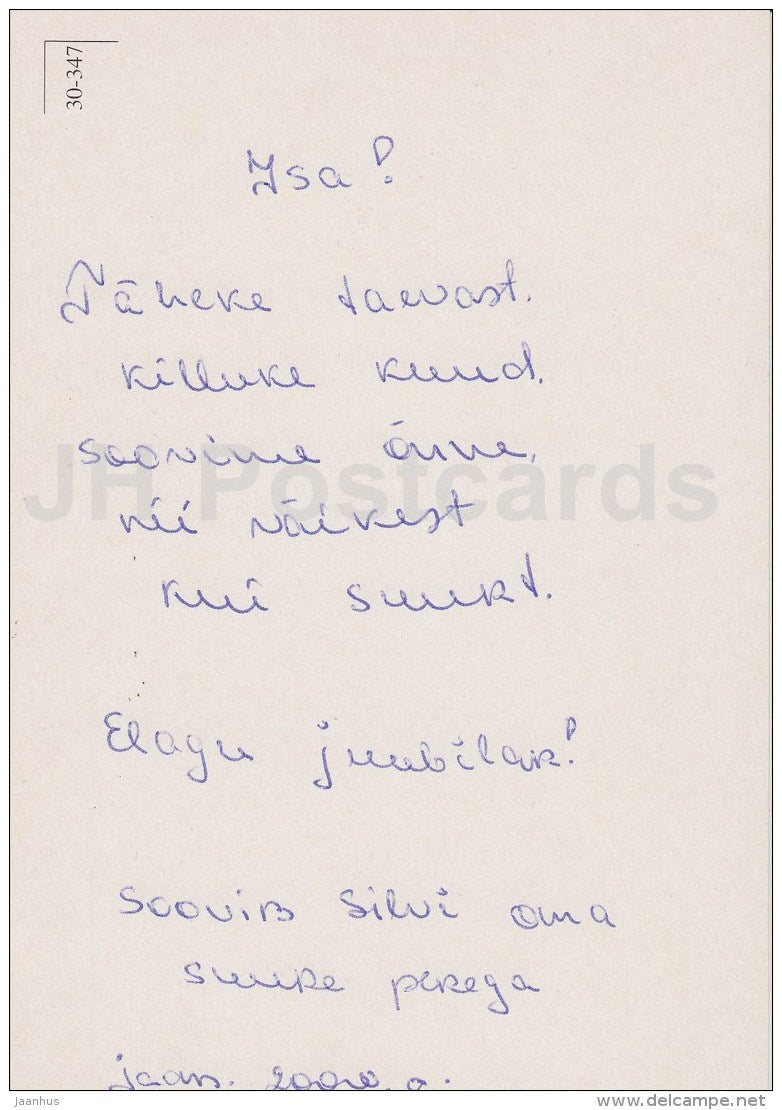 30-347
Isa!
Täheke taevast,
killuke kuud,
soovime õnne,
nii väikest
kui suurt.
Elagu juubilar!
Soovib Silvi oma
suure perega
jaan. 2000. a.
JH Postcards
Jaanhus
delcampe.net